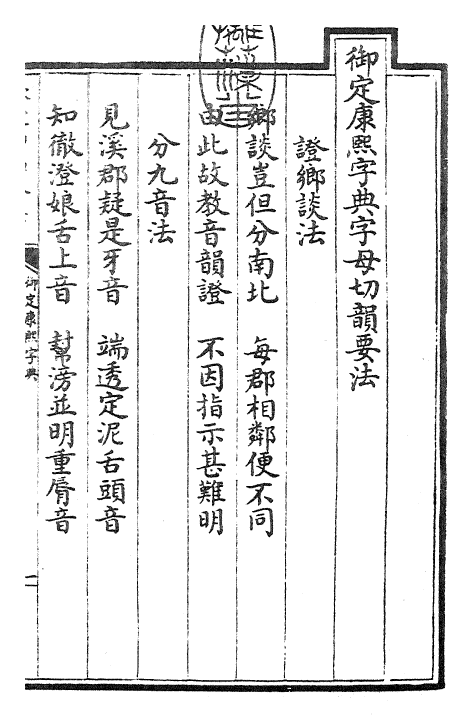 御定康熙字典字母切韻要法
證鄉談法
鄉談豈但分南北　每郡相鄰便不同
由此故教音韻證　不因指示甚難明
分九音法
見溪郡疑是牙音　端透定泥舌頭音
知徹澄娘舌上音　幫滂並明重脣音
御定康熙字典
一